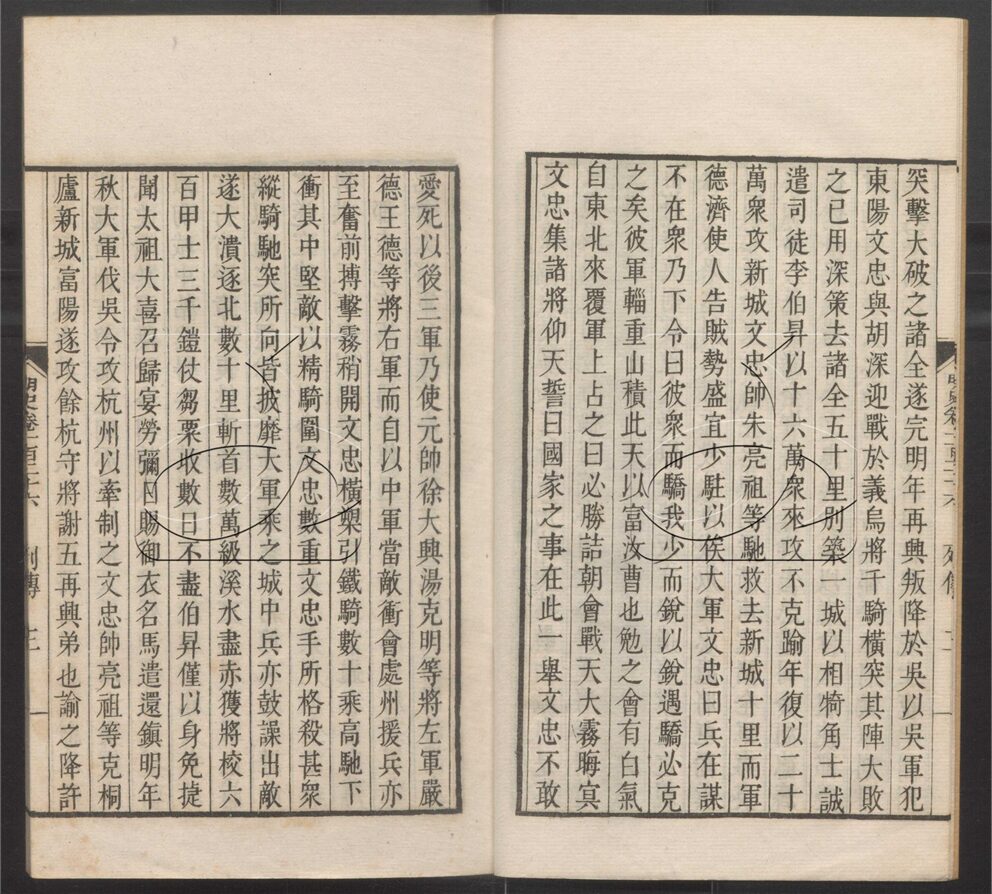 突擊大破之諸全遂完明年再興叛降於吳以吳軍犯
東陽文忠與胡深迎戰於義烏將千騎橫突其陣大敗
之已用深策去諸全五十里別築一城以相犄角士誠
遣司徒李伯昇以十六萬衆來攻不克踰年復以二十
萬衆攻新城文忠帥朱亮祖等馳救去新城十里而軍
德濟使人告賊勢盛宜少駐以俟大軍文忠曰兵在謀
不在衆乃下令曰彼衆而驕我少而銳以銳遇驕必克
之矣彼軍輜重山積此天以富汝曹也勉之會有白氣
自東北來覆軍上占之曰必勝詰朝會戰天大霧晦冥
文忠集諸將仰天誓曰國家之事在此一舉文忠不敢
愛死以後三軍乃使元帥徐大興湯克明等將左軍嚴
德王德等將右軍而自以中軍當敵衝會處州援兵亦
至奮前搏擊霧稍開文忠橫槊引鐵騎數十乘高馳下
衝其中堅敵以精騎圍文忠數重文忠手所格殺甚衆
縱騎馳突所向皆披靡大軍乘之城中兵亦鼓譟出敵
遂大潰逐北數十里斬首數萬級溪水盡赤獲將校六
百甲士三千鎧仗芻粟收數日不盡伯昇僅以身免捷
聞太祖大喜召歸宴勞彌日賜御衣名馬遣還鎮明年
秋大軍伐吳令攻杭州以牽制之文忠帥亮祖等克桐
廬新城富陽遂攻餘杭守將謝五再興弟也諭之降許
明史卷一百二十六 列傳 十二